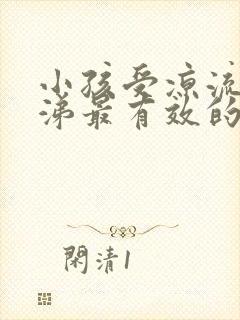 小孩受凉流
涕最有效的
閑清1